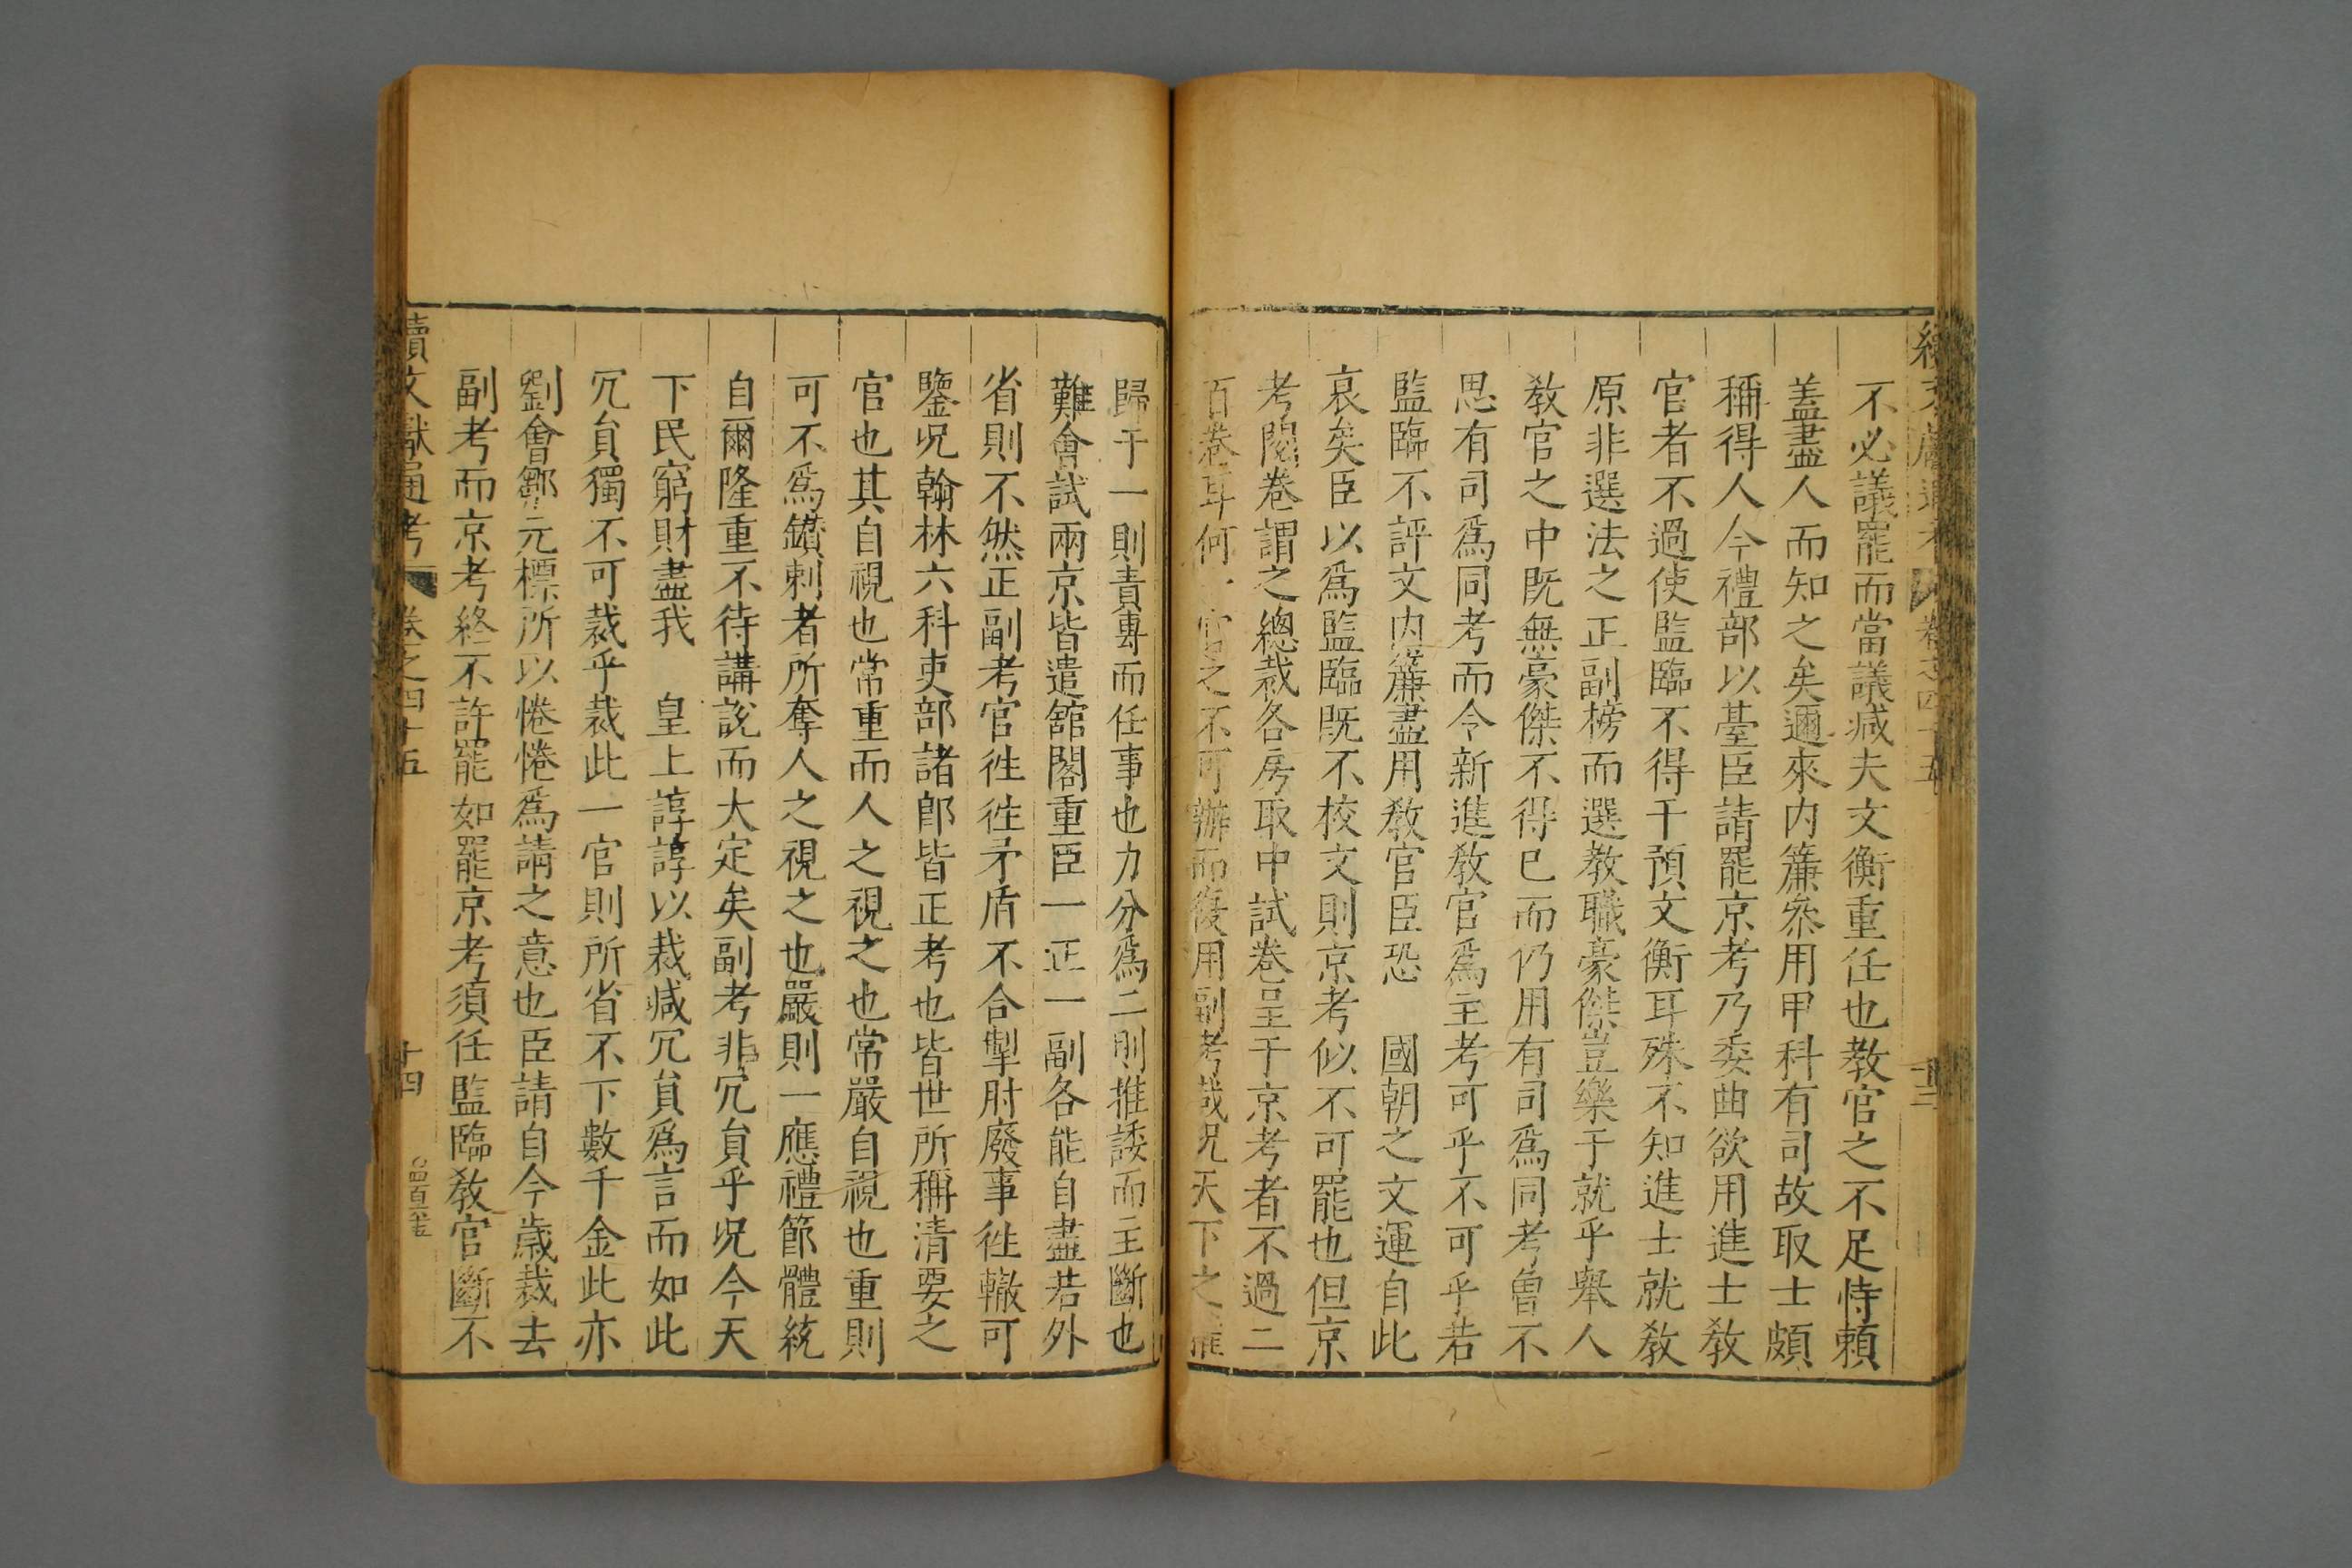 續文獻通考 卷之四十五 十三
不必議罷而當議减夫文衡重任也教官之不足恃頼
盖盡人而知之矣邇來内簾叅用甲科有司故取士頗
稱得人今禮部以臺臣請罷京考乃委曲欲用進士教
官者不過使監臨不得干預文衡耳殊不知進士就教
原非選法之正副榜而選教職豪傑豈樂于就乎舉人
教官之中既無豪傑不得已而仍用有司爲同考曾不
思有司爲同考而令新進教官爲主考可乎不可乎若
監臨不評文内簾盡用教官臣恐 國朝之文運自此
哀矣臣以爲監臨既不校文則京考似不可罷也但京
考閱卷謂之總裁各房取中試卷呈于京考者不過二
百卷耳何一官之不可辦而復用副考哉况天下之權
歸于一則責專而任事也力分爲二則推諉而主斷也
難會試兩京皆遣舘閣重臣一正一副各能自盡若外
省則不然正副考官徃徃矛盾不合掣肘廢事徃轍可
鑒况翰林六科吏部諸郎皆正考也皆世所稱清要之
官也其自視也常重而人之視之也常嚴自視也重則
可不爲鑽刺者所奪人之視之也嚴則一應禮節體統
自爾隆重不待講說而大定矣副考非冗負乎况今天
下民窮財盡我 皇上諄諄以裁减冗負爲言而如此
冗負獨不可裁乎裁此一官則所省不下數千金此亦
劉會鄒元標所以惓惓爲請之意也臣請自今歲裁去
副考而京考終不許罷如罷京考須任監臨教官斷不
續文獻通考 卷之四十五 十四